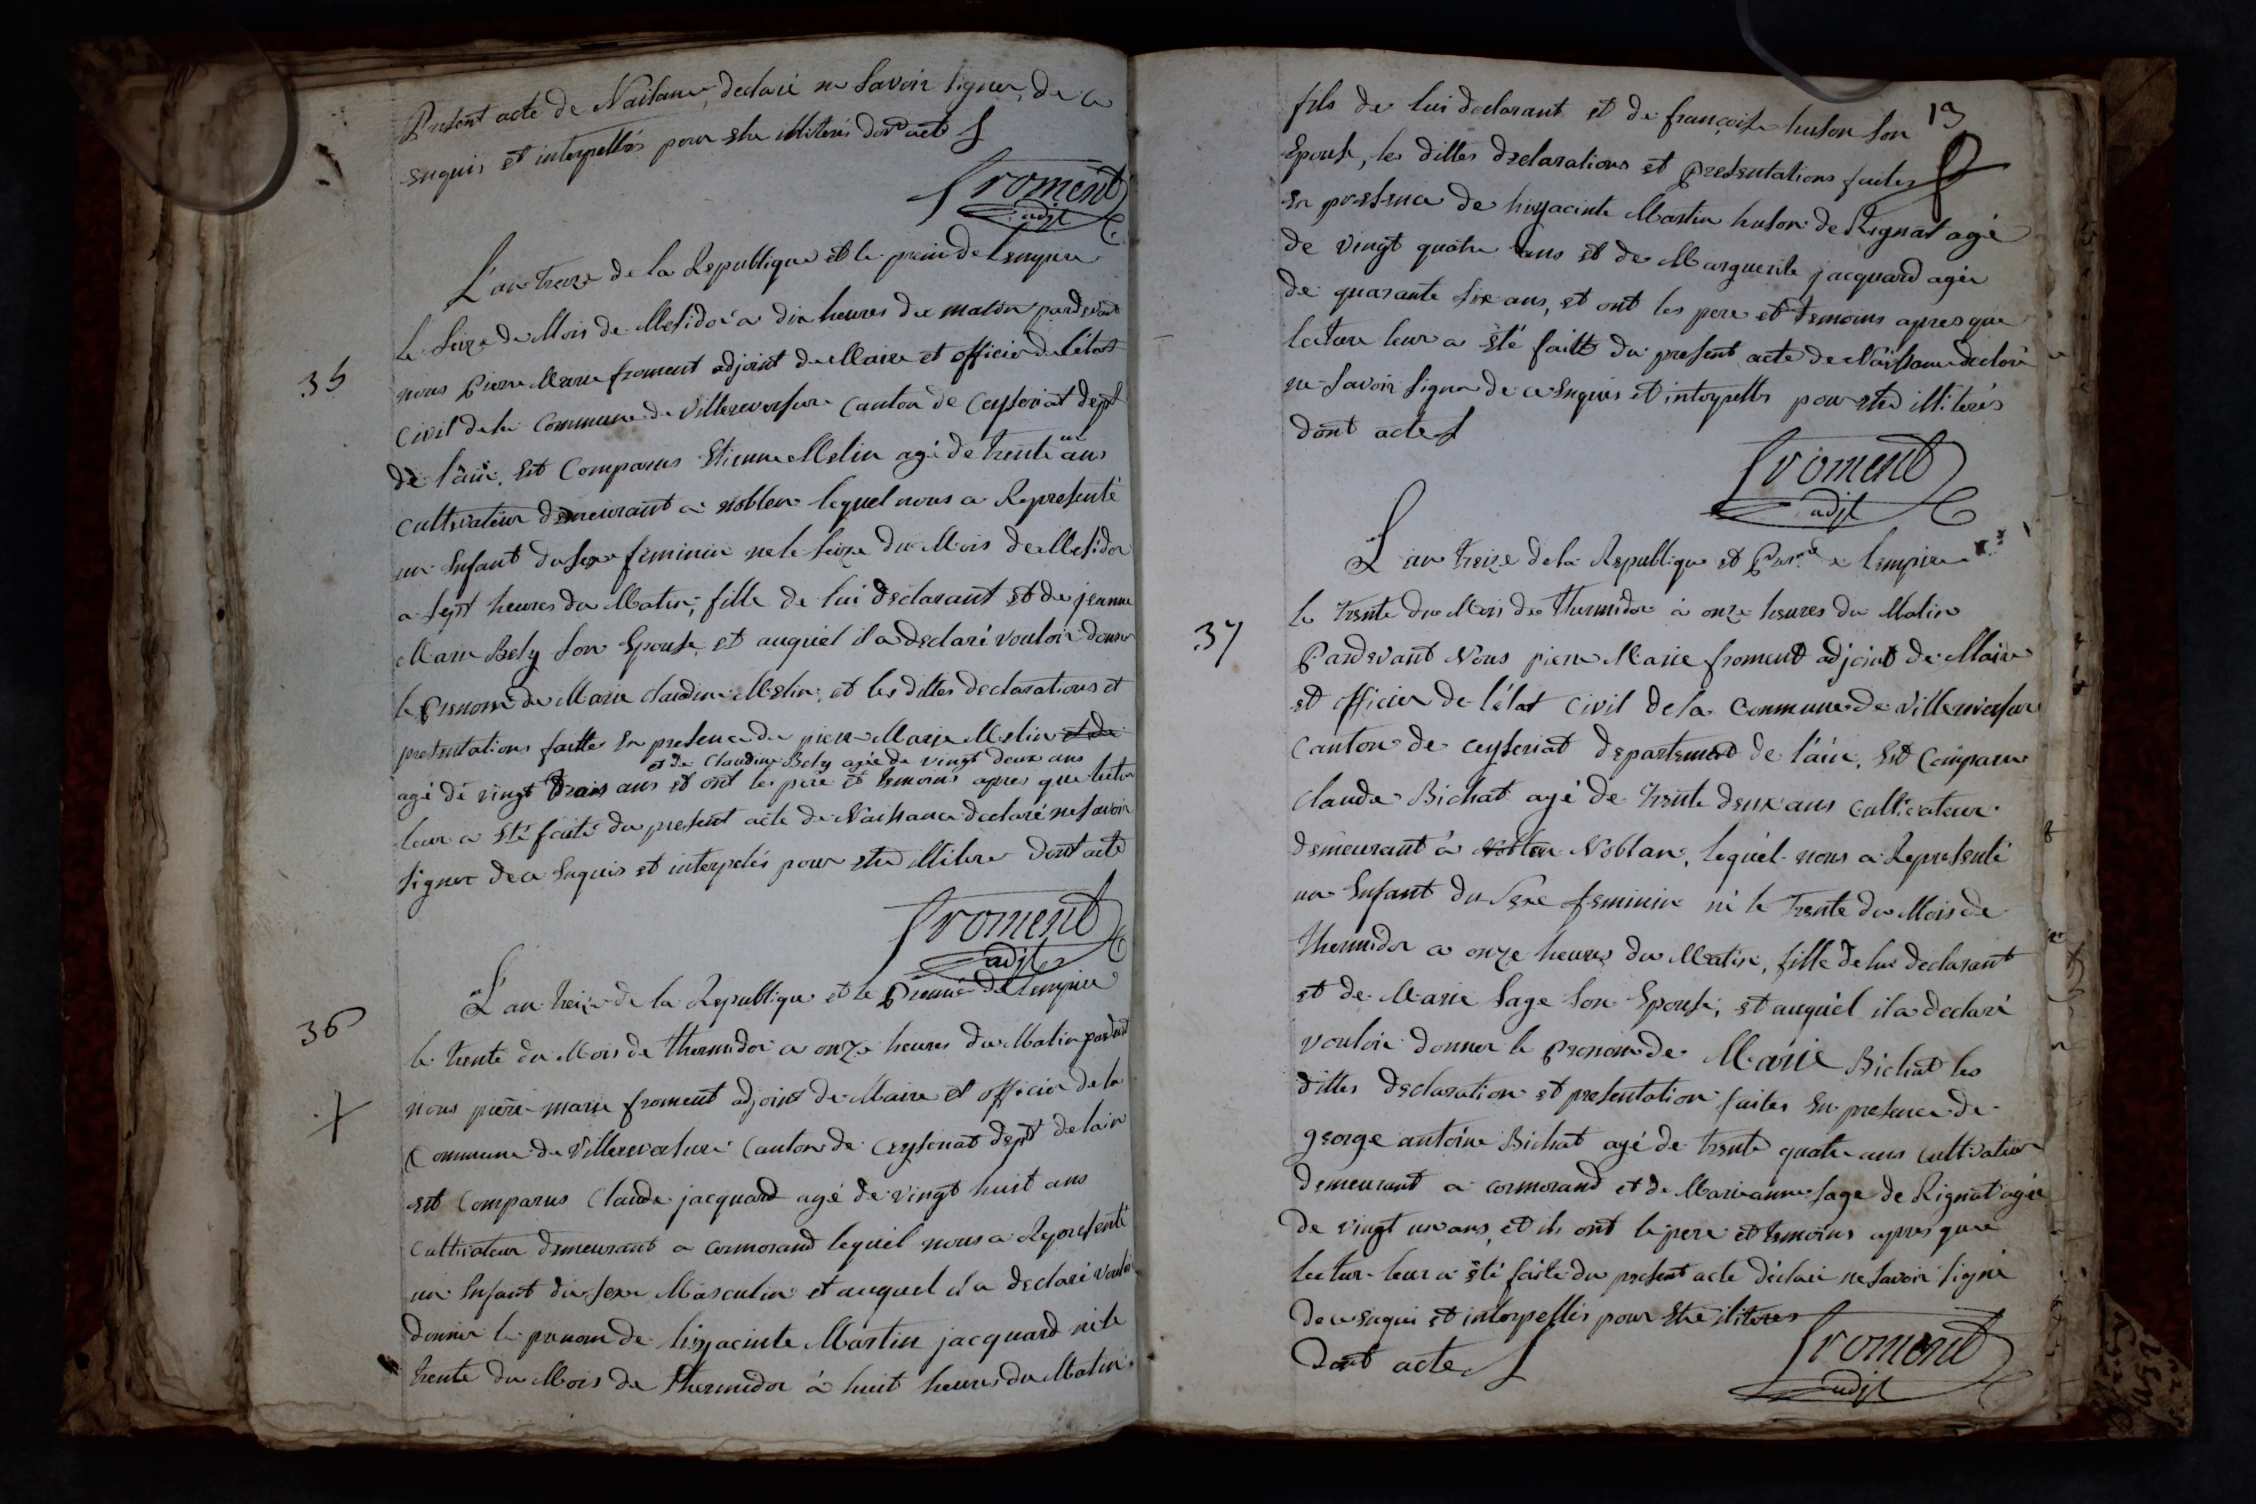 Present acte de Naisance, declaré ne Savoir signer, de ce
enquis et interpellés pour etre illiterés dont acte
froment
adjt
L'an treize de la Republique et le premier de l'empire
35
le Seize du Mois de Mesidor a dix heures du matin pardevant
nous Pierre Marie froment adjoint du Maire et officier de l'état
Civil de la Commune de Villereversure Canton de Ceyseriat dept
de l'ain, est Comparus Etienne Melin agé de trente un ans
Cultivateur demeurant a noblen lequel nous a Representé
un Enfant du Sexe feminin né le Seize du Mois de Mesidor
a Sept heures du Matin, fille de lui declarant et de jeanne
Marie Bely Son Epouse, et auquel il a declaré vouloir donner
le Prenom de Marie Claudine Melin, et les dittes declarations et
presentations faittes En presence de pierre Marie Melin et de
et de Claudine Bely agée de vingt deux ans
agé de vingt trois ans et ont les père et temoins apres que lecture
leur a été faite du present acte de Naissance declaré ne Savoir
Signer de ce Enquis et interpelés pour etre illiteré Dont acte
froment
adjt
36
L'an treize de la Republique et le Premier de l'empire
le trente du Mois de thermidor a onze heures du Matin pardevant
nous pierre marie froment adjoint de Maire et officier de la
Commune de Villereversure Canton de Ceyseriat dept de lain
est Comparus Claude jacquard agé de vingt huit ans
Cultivateur demeurant a cormorand lequel nous a Representé
un Enfant du sexe Masculin et auquel il a declaré vouloir
donner le prenom de hiyacinte Martin jacquard né le
trente du Mois de thermidor à huit heures du Matin,
13
fils de lui declarant et de françoise huson Son
Epouse, les dittes declarations et Presentations faites
En presence de hiyacinte Martin huson de Rignat agé
de vingt quatre ans et de Marguerite jacquard agée
de quarante six ans, et ont les pere et temoins apres que
lecture leur a été faitte du present acte de Naissance declaré
ne Savoir Signer de ce Enquis et interpellés pour etre illiterés
dont acte
froment
adjt
L'an treize de la Republique et Premier de lempire
37
le trente du Mois de thermidor à onze heures du Matin
Pardevant Nous pierre Marie froment adjoint de Maire
et officier de l'état Civil de la Commune de Villereversure
Canton de ceyseriat departement de l'ain, Est Comparu
Claude Bichat agé de trente deux ans Cultivateur
demeurant à noblen Noblan, lequel nous a Representé
un Enfant du Sexe feminin né le trente du Mois de
thermidor a onze heures du Matin, fille de lui declarant
et de Marie Sage Son Epouse, et auquel il a declaré
vouloir donner le Prenom de Marie Bichat les
dittes declaration et presentation faites En presence de
george antoine Bichat agé de trente quatre ans Cultivateur
demeurant a cormorand et de Marieanne Sage de Rignat agée
de vingt un ans, et ils ont le pere et temoins apres que
lecture leur a été faite du present acte déclaré ne Savoir Signé
de ce enqui et interpellés pour etre iliteres
Dont acte
froment
adjt